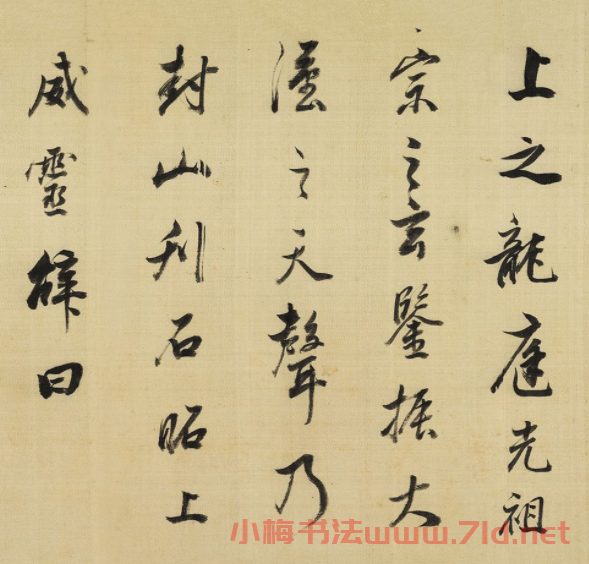 上之龍庭光祖
宗之玄鑒振大
漢之天聲乃
封山刊石昭上
威靈辭曰
小梅书法www.7ld.net